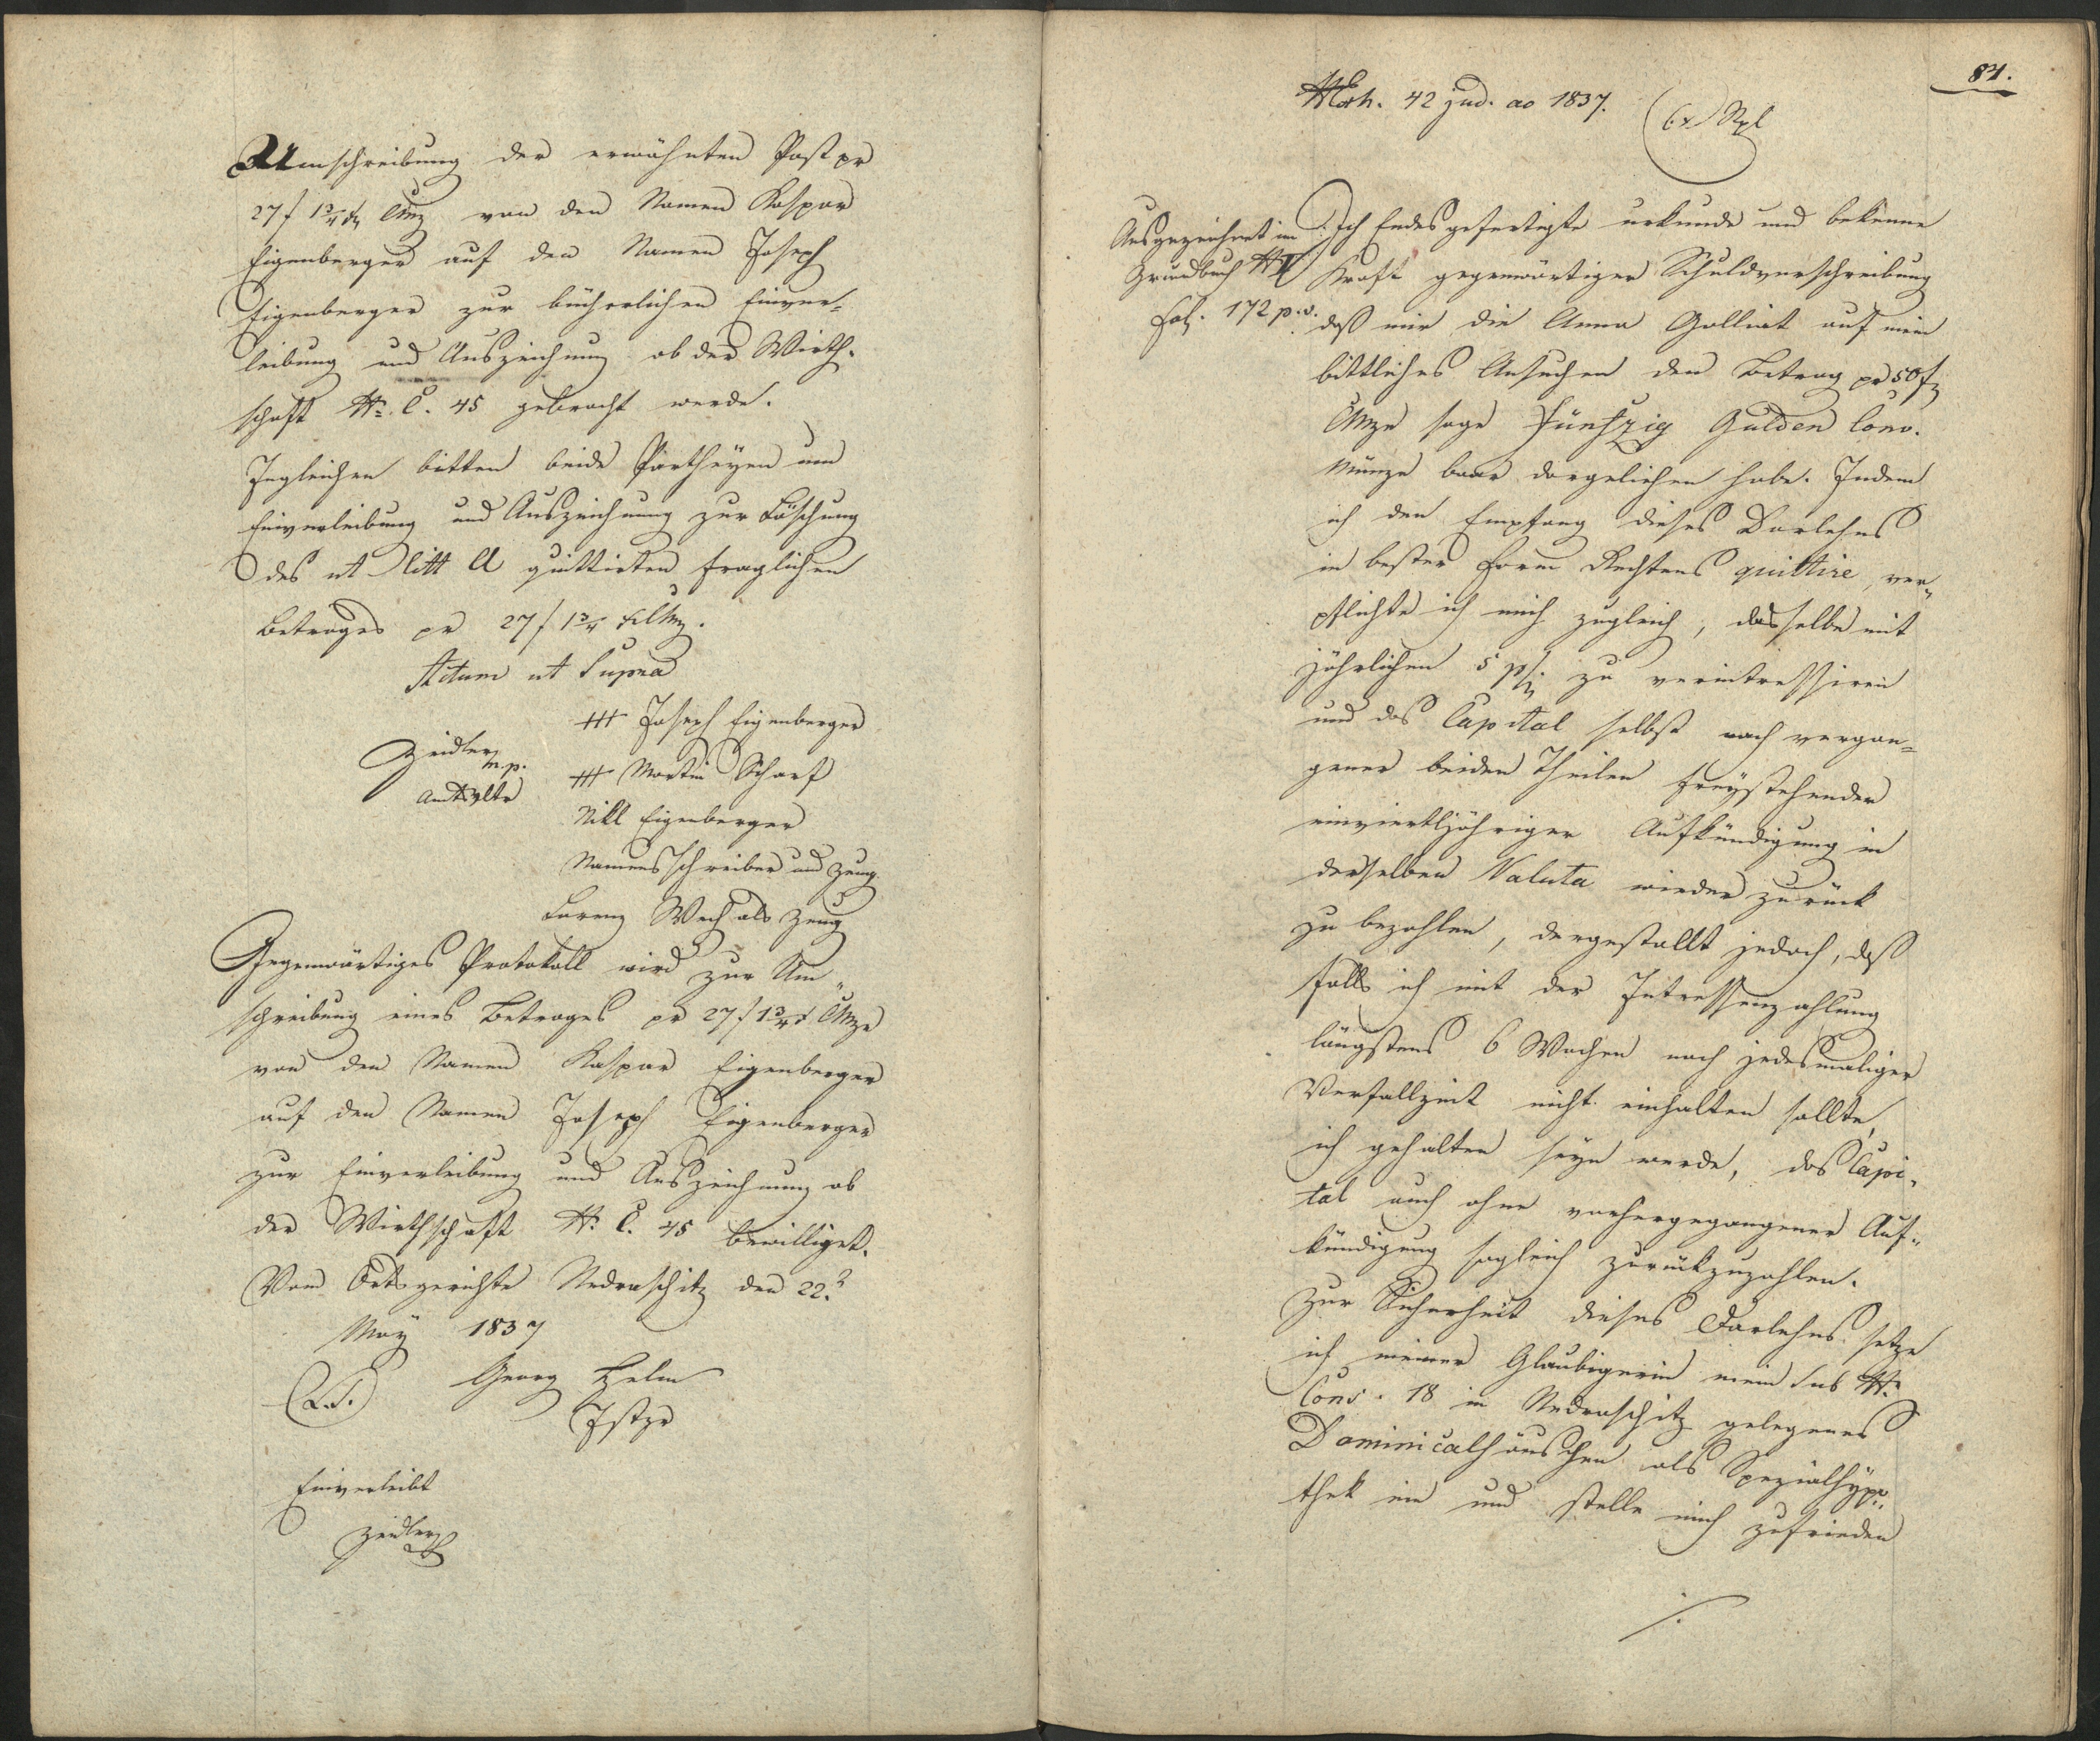 Umschreibung der erwähnten Post pr
27 f 1 3/4 x CMz von den Namen Kaspar
Eigenberger auf den Namen Joseph
Eigenberger zur bücherlichen Einver-
leibung und Auszeichnung ob der Wirth-
schaft Nr. C. 45 gebracht werde.
Ingleichen bitten beide Partheyen um
Einverleibung und Auszeichnung zur Löschung
des ut litt A quittirten fraglichen
Betrages pr 27 f 1 3/4 x CMz.
Actum ut Supra
+++ Joseph Eigenberger
Zeidler m.p.
+++ Martin Scharf
Amtsvltr
Nikl Eigenberger
Namensschreiber und Zeug
Lorenz Wech als Zeug
Gegenwärtiges Protokoll wird zur Um-
schreibung eines Betrages pr 27 f 1 3/4 x CMze
von den Namen Kaspar Eigenberger
auf den Namen Joseph Eigenberger
zur Einverleibung und Auszeichnung ob
der Wirthschaft Nr. C. 45 bewilliget.
Vom Ortsgerichte Nedraschitz den 22t
May 1837
(L.S.) Georg Helm
Jstzr
Einverleibt
Zeidler
84.
NExh. 42 jud. ao 1837.
Ausgezeichnet im
Grundbuch N V
Fol. 172 p. v.
Ich Endesgefertigte urkunde und bekenne
Kraft gegenwärtiger Schuldverschreibung
daß mir die Anna Galliat auf mein
bittliches Ansuchen den Betrag pr 50 f
CMze sage Fünfzig Gulden Conv.
Münze baar dargeliehen habe. Indem
ich den Empfang dieses Darlehns
in bester Form Rechtens quittire, ver-
pflichte ich mich zugleich, dasselbe mit
jährlichen 5 p% zu verintressiren
und das Capital selbst nach vergan-
gener beiden Theilen freystehender
einvierteljähriger Aufkündigung in
derselben Valuta wieder zurück
zu bezahlen, dergestallt jedoch, daß
falls ich mit der Intressenzahlung
längstens 6 Wochen nach jedesmaliger
Verfallzeit nicht einhalten sollte,
ich gehalten seyn werde, das Capi-
tal auch ohne vorhergegangener Auf-
kündigung sogleich zurückzuzahlen.
Zur Sicherheit dieses Darlehns setze
ich meiner Glaubigerin mein sub Nr.
Cons. 18 in Nedraschitz gelegenes
Dominicalhäuschen als Spezialhypo-
thek ein und stelle mich zufrieden
./.